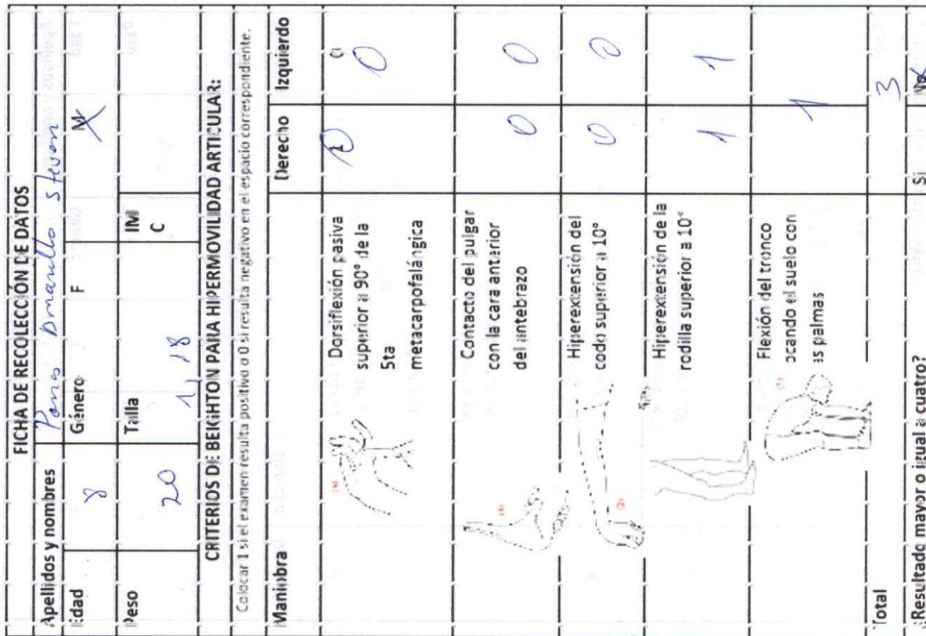 FICHA DE RECOLECCIÓN DE DATOS
Apellidos y nombres Steven
Edad 8 Género F M X
Peso 20 Talla 1,18 IM C
CRITERIOS DE BEIGHTON PARA HIPERMOVILIDAD ARTICULAR:
Colocar 1 si el examen resulta positivo o 0 si resulta negativo en el espacio correspondiente.
Maniobra Derecho Izquierdo
Dorsiflexión pasiva superior a 90° de la 5ta metacarpofalángica 0 0
Contacto del pulgar con la cara anterior del antebrazo 0 0
Hiperextensión del codo superior a 10° 0 0
Hiperextensión de la rodilla superior a 10° 1 1
Flexión del tronco ocando el suelo con as palmas 1
Total 3
¿Resultado mayor o igual a cuatro? Si No